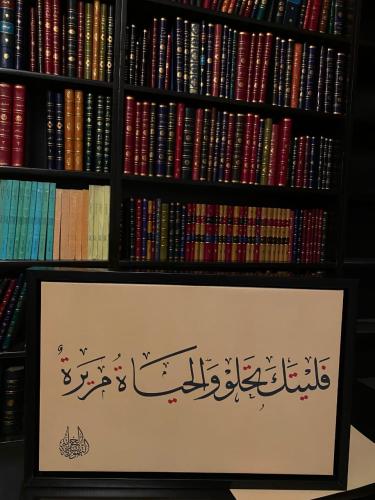 فَليتكَ تحلو وَالحياةُ مَريَرةٌ